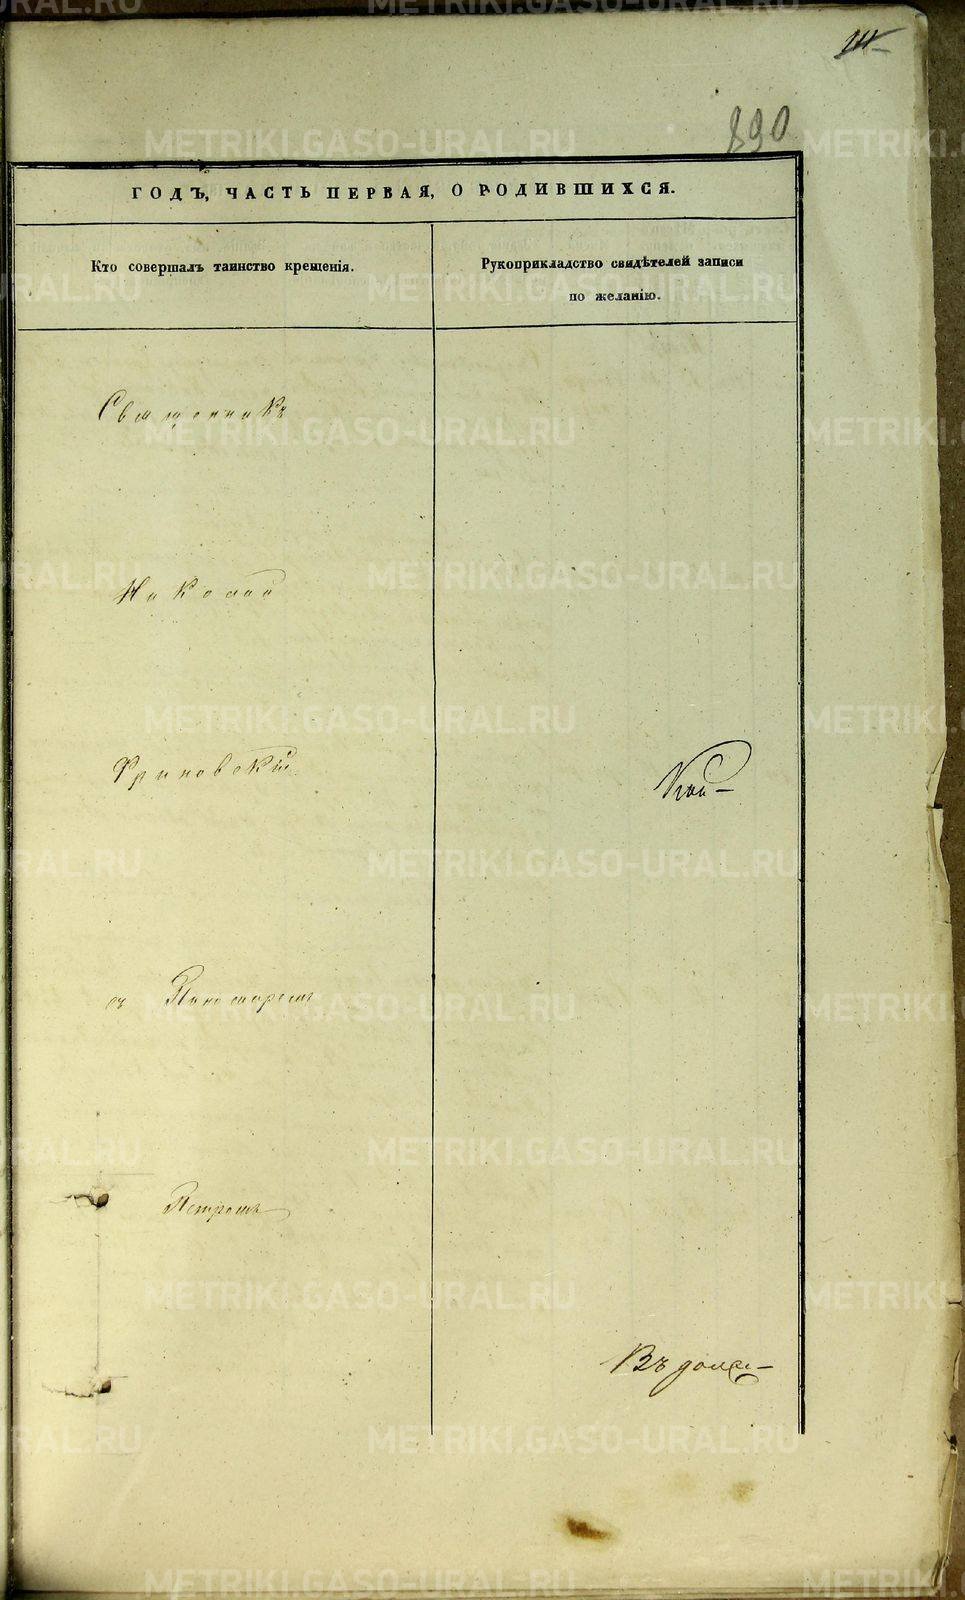 890
ГОДЪ, ЧАСТЬ ПЕРВАЯ, О РОДИВШИХСЯ.
Кто совершалъ таинство крещенія.
Рукоприкладство свидѣтелей записи
по желанію.
Священникъ
Николай
Фриновскій
съ
Петромъ
METRIKI.GASO-URAL.RU